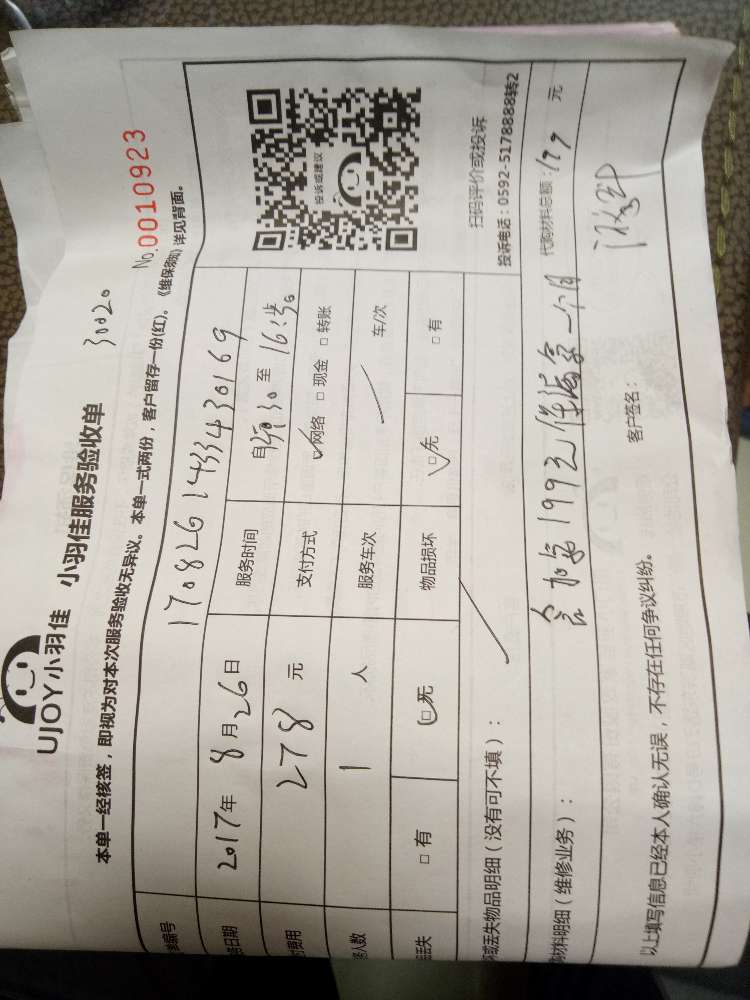 UJOY小羽佳 小羽佳服务验收单
30020
本单一经核签，即视为对本次服务验收无异议。本单一式两份，客户留存一份(红)。《维保须知》详见背面。
No.0010923
编号 1708261433430169
日期 2017年8月26日 服务时间 自 30 至 16:50
费用 278 元 支付方式 ☑网络 □现金 □转账
人数 1 人 服务车次 车/次
丢失 □有 ☑无 物品损坏 ☑无 □有
投诉或建议
扫码评价或投诉
投诉电话：0592-5178888转2
或丢失物品明细（没有可不填）：
材料明细（维修业务）： 加 199 一个月 代购材料总额：199 元
以上填写信息已经本人确认无误，不存在任何争议纠纷。 客户签名：